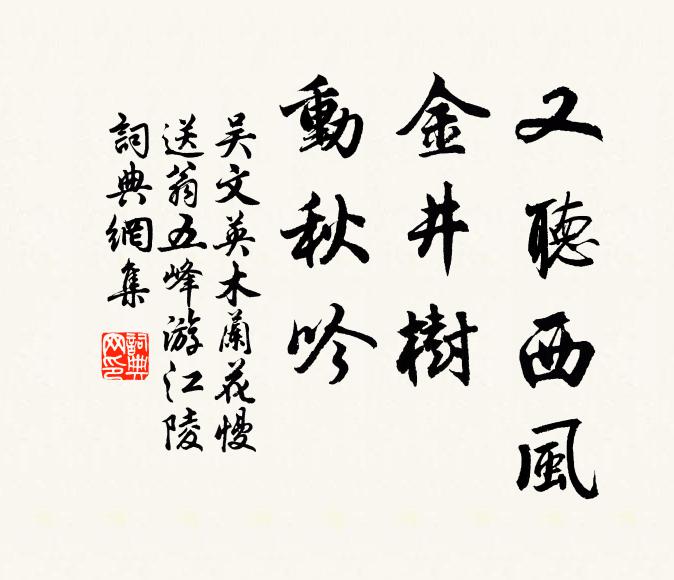 又聽西風
金井樹
動秋吟
吴文英木蘭花慢
送翁五峰游江陵
詞典網集
詞典网印